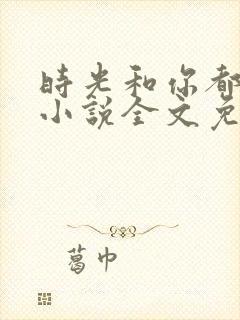 時光和你都
小說全文免
葛巾